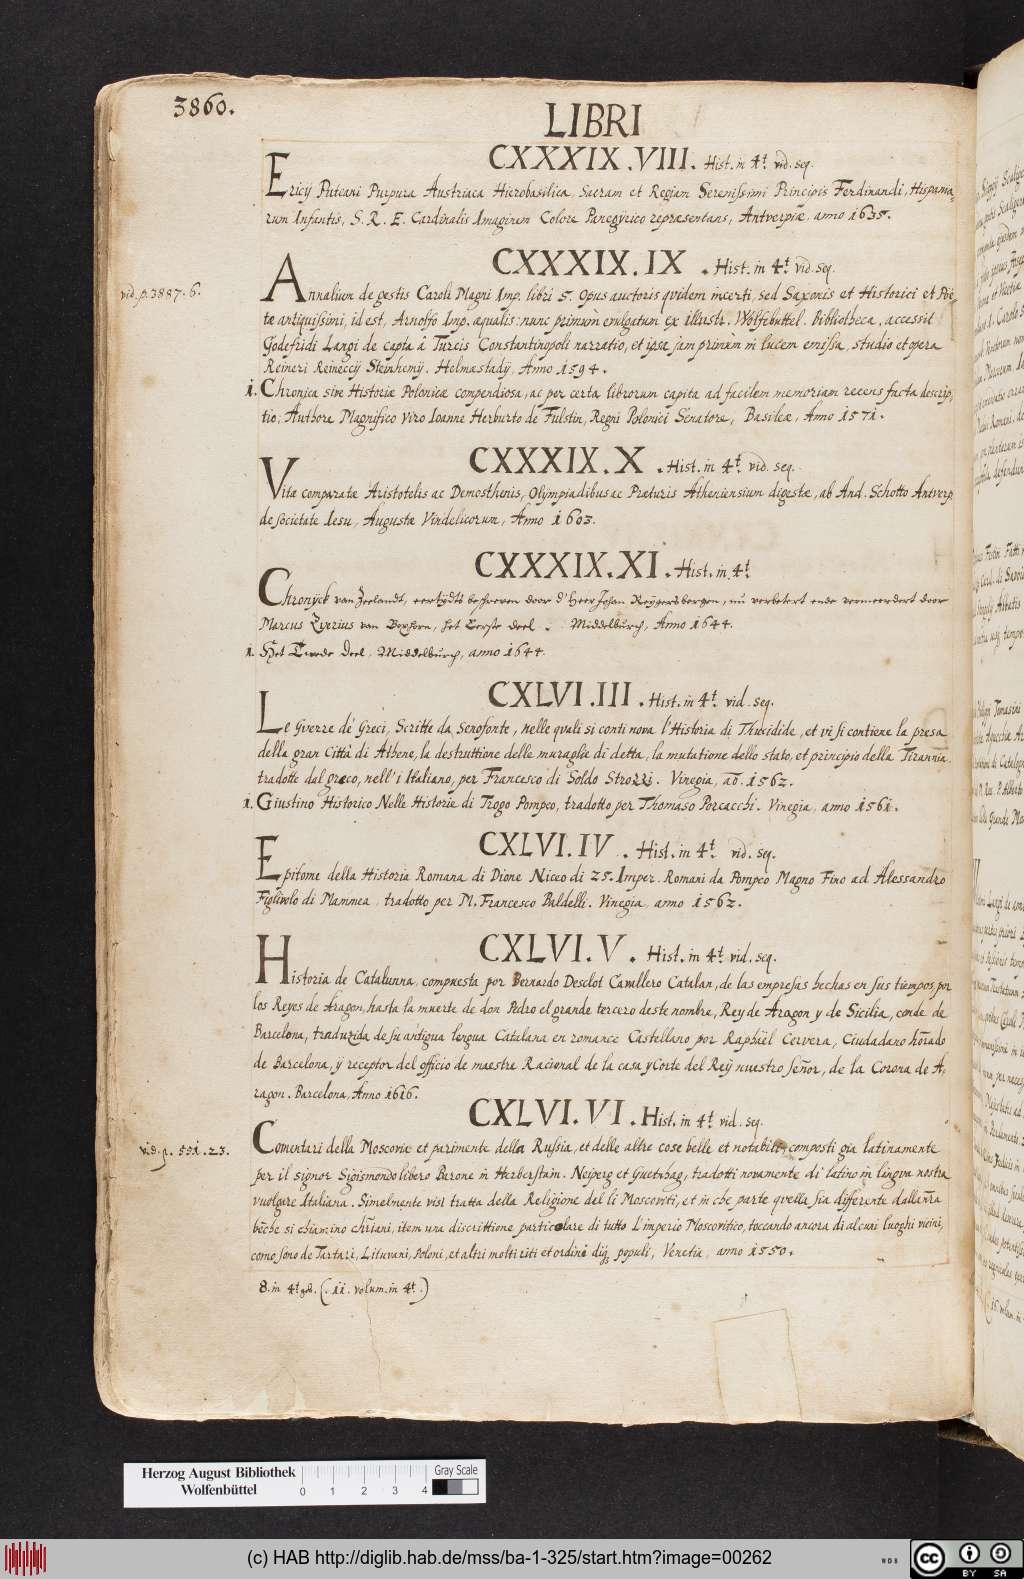 3860.
LIBRI
CXXXIX.VIII. Hist. in 4t. vid. seq.
Ericÿ Puteani Purpura Austriaca Hierobasilica Sacram et Regiam Serenissimi Principis Ferdinandi, Hispania-
rum Infantis, S. R. E. Cardinalis Imaginem Colore Panegÿrico repræsentans, Antverpiæ, anno 1635.
CXXXIX.IX . Hist. in 4t. vid. seq.
vid. p. 3887. 6.
Annalium de gestis Caroli Magni Imp. libri 5. Opus auctoris qvidem incerti, sed Saxonis et Historici et Poë-
tæ antiquissimi, id est, Arnolfo Imp. æqualis: nunc primùm evulgatum ex illustr. Wolfebuttel. Bibliotheca. accessit
Godefridi Langi de capta â Turcis Constantinopoli narratio, et ipsa jam primum in lucem emissa, studio et opera
Reineri Reineccÿ Steinhemÿ. Helmæstadÿ, Anno 1594.
1. Chronica sive Historiæ Polonicæ compendiosa, ac per certa librorum capita ad facilem memoriam recens facta descrip-
tio, Authore Magnifico Viro Ioanne Herburto de Fulstin, Regni Polonici Senatore, Basileæ, Anno 1571.
CXXXIX.X . Hist. in 4t. vid. seq.
Vitæ comparatæ Aristotelis ac Demosthenis, Olympiadibus ac Præturis Atheniensium digestæ, ab And. Schotto Antverp.
de societate Iesu, Augustæ Vindelicorum, Anno 1603.
CXXXIX.XI . Hist. in 4t.
Chronÿck van Zeelandt, eertÿdts beschreven door d'Heer Johan Reÿgersbergen, nu verbetert ende vermeerdert door
Marcus Zverius van Boxhorn, het Eerste deel . Middelburch, Anno 1644.
1. Het Twede Deel, Middelburch, anno 1644.
CXLVI.III . Hist. in 4t. vid. seq.
Le Gverre de' Greci, Scritte da Senofonte, nelle qvali si continova l'Historia di Thucidide, et vi si contiene la presa
della gran Città di Athene, la destruttione delle muraglie di detta, la mutatione dello stato, et principio della Tirannia,
tradotte del greco, nell'i Italiano, per Francesco di Soldo Strozzi. Vinegia, aō. 1562.
1. Giustino Historico Nelle Historie di Trogo Pompeo, tradotto per Thomaso Porcacchi. Vinegia, anno 1561.
CXLVI.IV . Hist. in 4t. vid. seq.
Epitome della Historia Romana di Dione Niceo di 25. Imper. Romani da Pompeo Magno Fino ad Alessandro
Figlivolo di Mammea, tradotto per M. Francesco Baldelli. Vinegia, anno 1562.
CXLVI.V . Hist. in 4t. vid. seq.
Historia de Catalunna, compuesta por Bernardo Desclot Cavallero Catalan, de las empresas hechas en sus tiempos, por
los Reyes de Aragon, hasta la muerte de don Pedro el grande tercero deste nombre, Rey de Aragon y de Sicilia, conde de
Barcelona, traduzida de su antigua lengua Catalana en romance Castellano por Raphäel Cervera, Ciudadano hōrado
de Barcelona, ÿ receptor del officio de maestre Racional de la casa y Corte del Reÿ nuestro señor, de la Corona de A-
ragon. Barcelona, Anno 1616.
CXLVI.VI . Hist. in 4t. vid. seq.
vid. p. 551. 23.
Comentari della Moscovia et parimente della Russia, et delle altre cose belle et notabili, composti gia latinamente
per il signor Sigismondo libero Barone in Herberstain, Neiperg et Guetnhag, tradotti novamente di latino in lingva nostra
vuolgare Italiana. Simelmente visi tratta della Religione del li Moscoviti, et in che parte qvella sia differente dalla nr̄a
bēche si chiamino chr̄iani, item una discrittione particolare di tutto L'imperio Moscovitico, toccando ancora di alcuni luoghi vicini,
come sono de Tartari, Lituvani, Poloni, et altri molti riti et ordini di popoli, Venetia, anno 1550.
8. in 4t. (. 11. volum. in 4t.)
Herzog August Bibliothek
Wolfenbüttel
0 1 2 3 4
Gray Scale
(c) HAB http://diglib.hab.de/mss/ba-1-325/start.htm?image=00262
WDB
cc BY SA